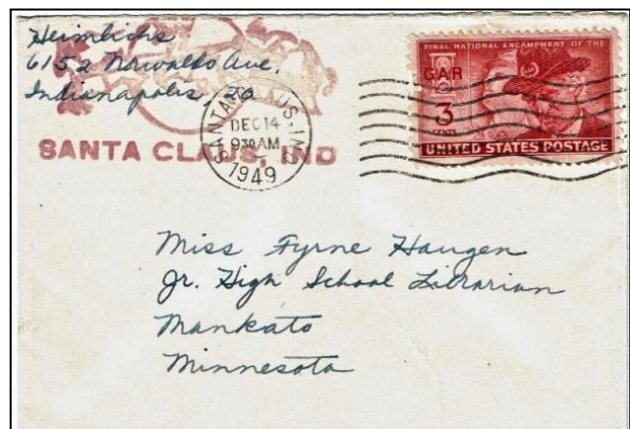 Heimlichs
6152 Norwaldo Ave.
Indianapolis, 20
SANTA CLAUS, IND
SANTA CLAUS, IND
DEC 14
930 AM
1949
FINAL NATIONAL ENCAMPMENT OF THE
GAR
3
CENTS
UNITED STATES POSTAGE
Miss Fyrne Haugen
Jr. High School Librarian
Mankato
Minnesota